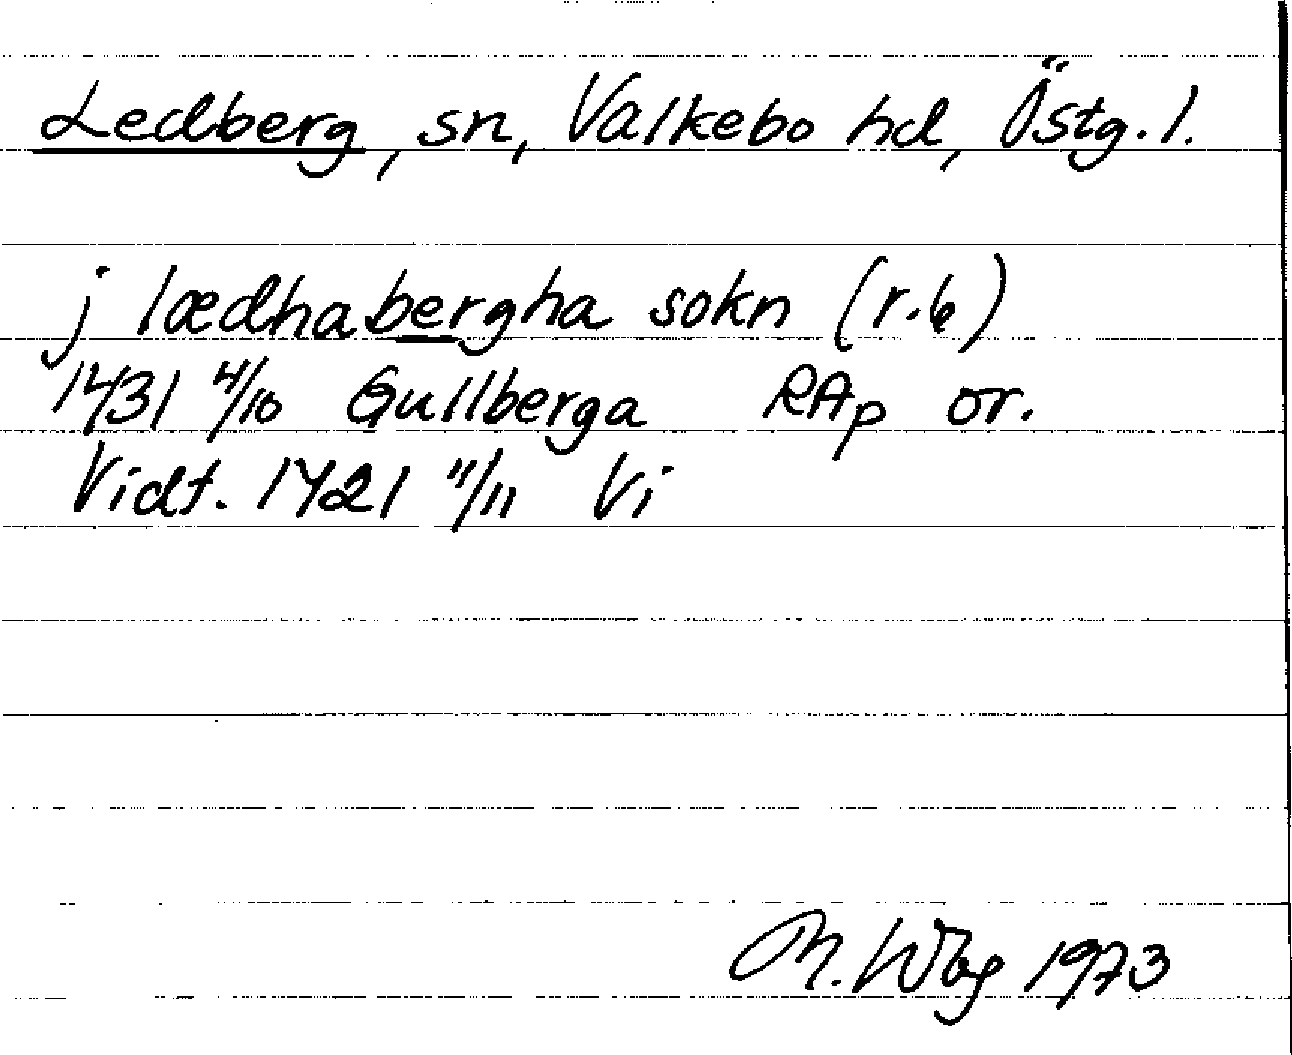 Ledberg, sn, Valkebo hd, Östg. l.
j lædhabergha sokn (r. 6)
1431 4/10 Gullberga RAp or.
Vidf. 1421 11/11 Vi
M. Wbg 1973